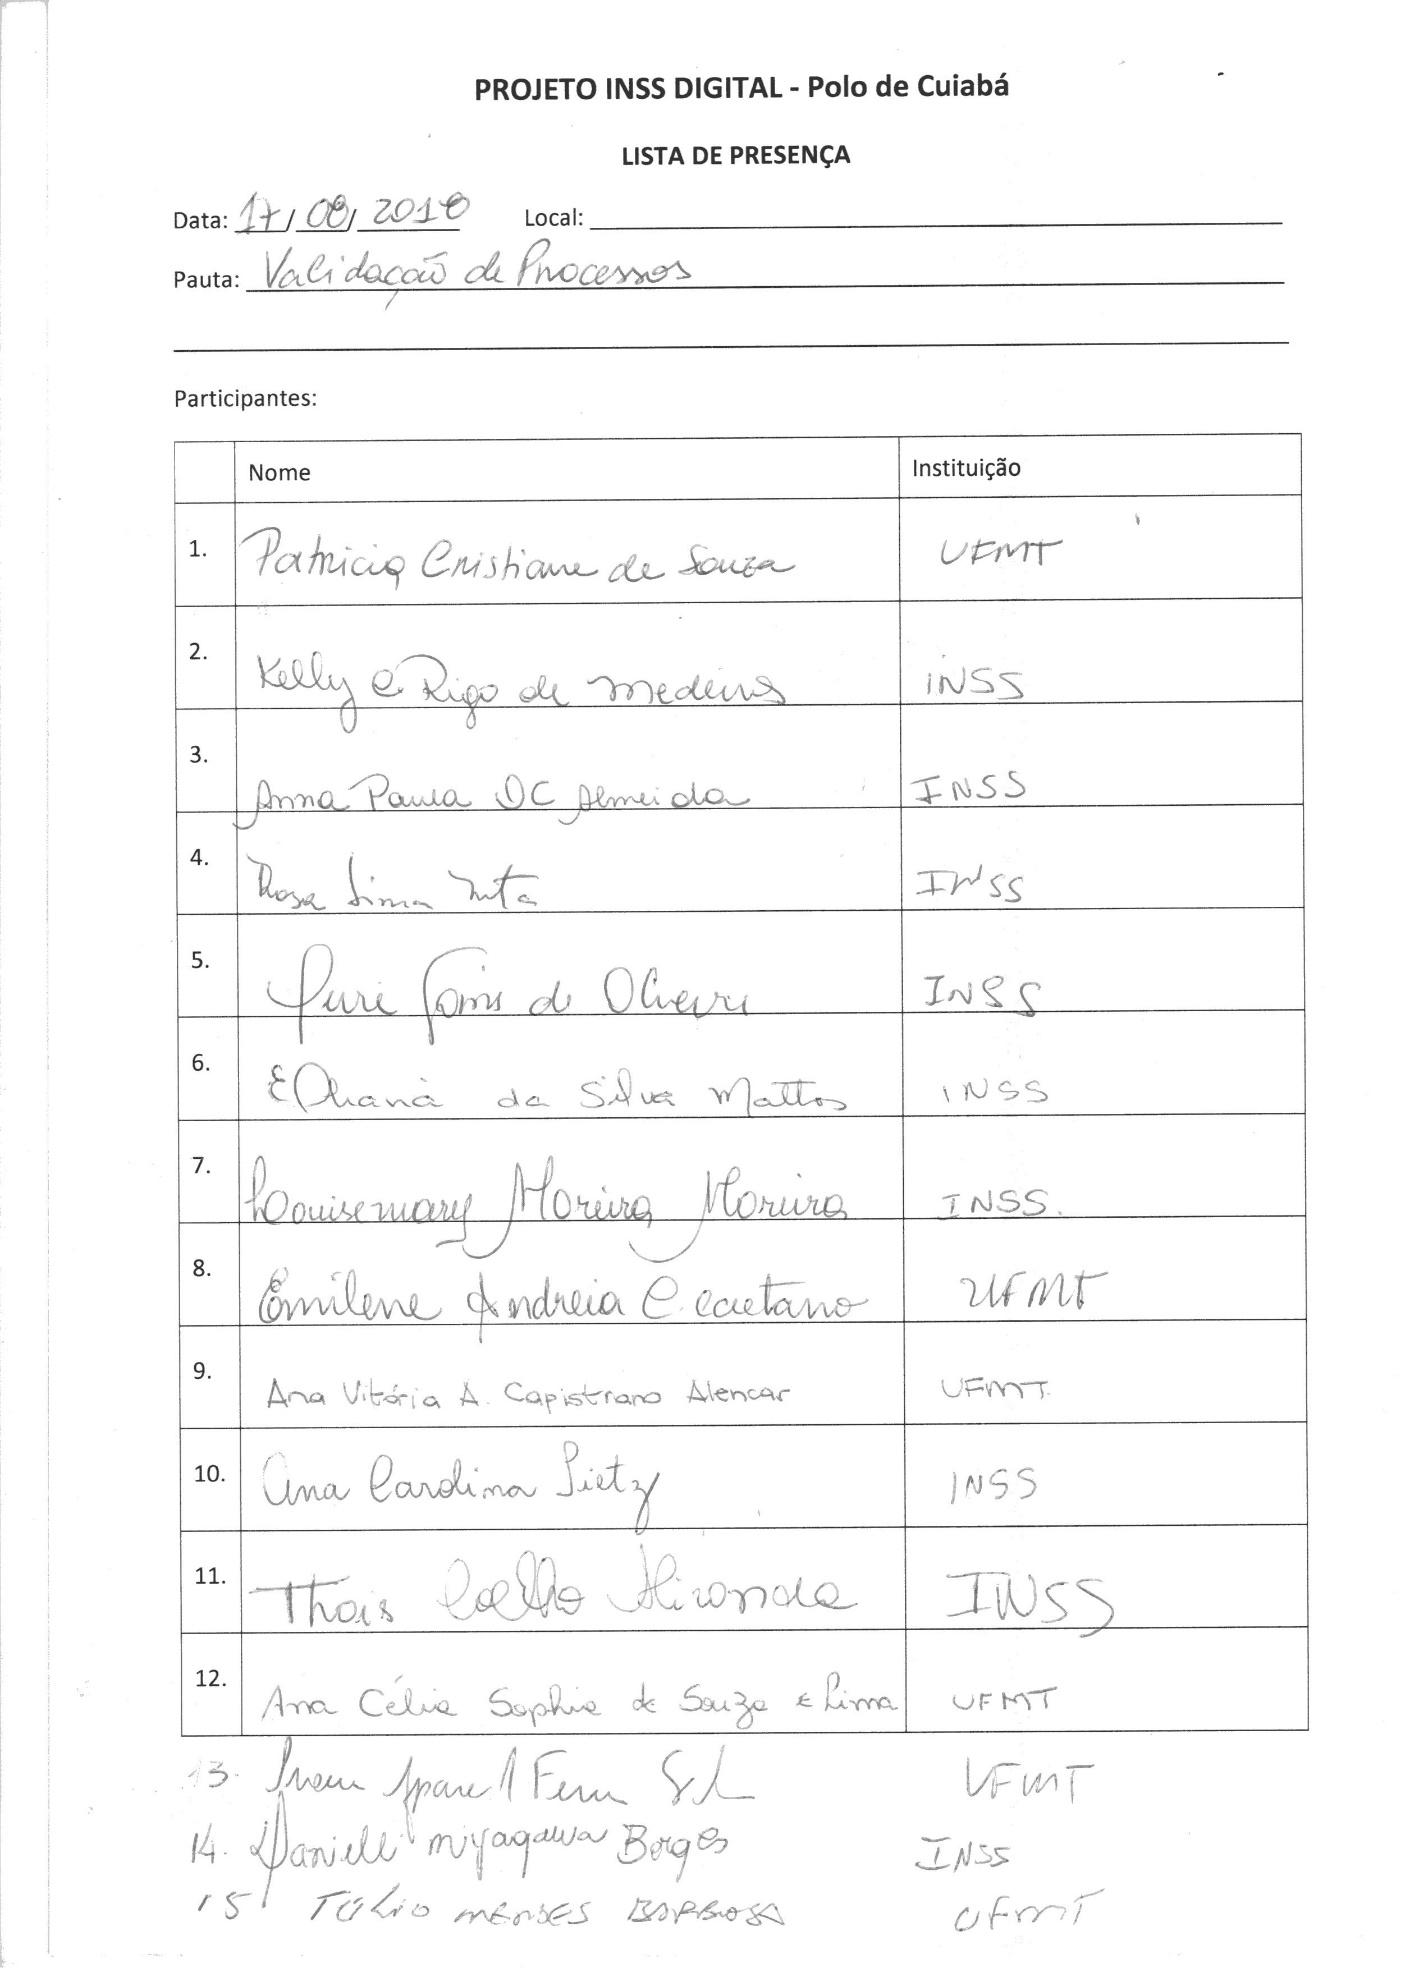 PROJETO INSS DIGITAL - Polo de Cuiabá
LISTA DE PRESENÇA
Data: 17/08/2018 Local:
Pauta: Validação de Processos
Participantes:
Nome Instituição
1. Patricia Cristiane de Souza UFMT
2. Kelly C. Rigo de Medeiros INSS
3. Anna Paula DC Almeida INSS
4. Rosa Lima INSS
5. Yuri de Oliveira INSS
6. da Silva Mattos INSS
7. Louisemary Moreira Moreira INSS.
8. Emilene Andreia C. Caetano UFMT
9. Ana Vitória A. Capistrano Alencar UFMT
10. Ana Carolina Pietz INSS
11. Thais Coelho Miranda INSS
12. Ana Célia Sophia de Souza e Lima UFMT
13. UFMT
14. Danielli Miyagawa Borges INSS
15 TÚLIO MENDES BARBOSA UFMT